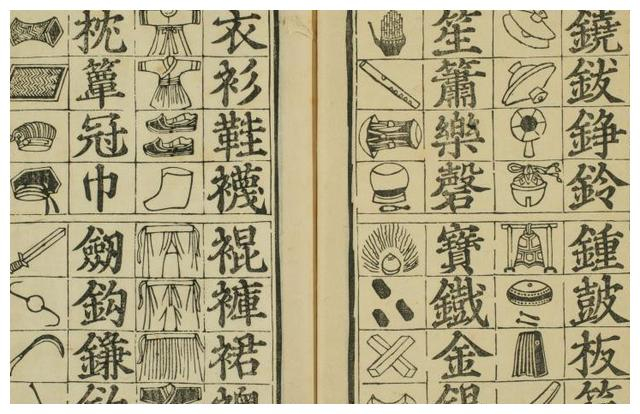 鐃鈸錚鈴鍾皷板
笙簫樂磬寶鐵金
衣衫鞋襪裩褲裙
枕簟冠巾劒鈎鎌